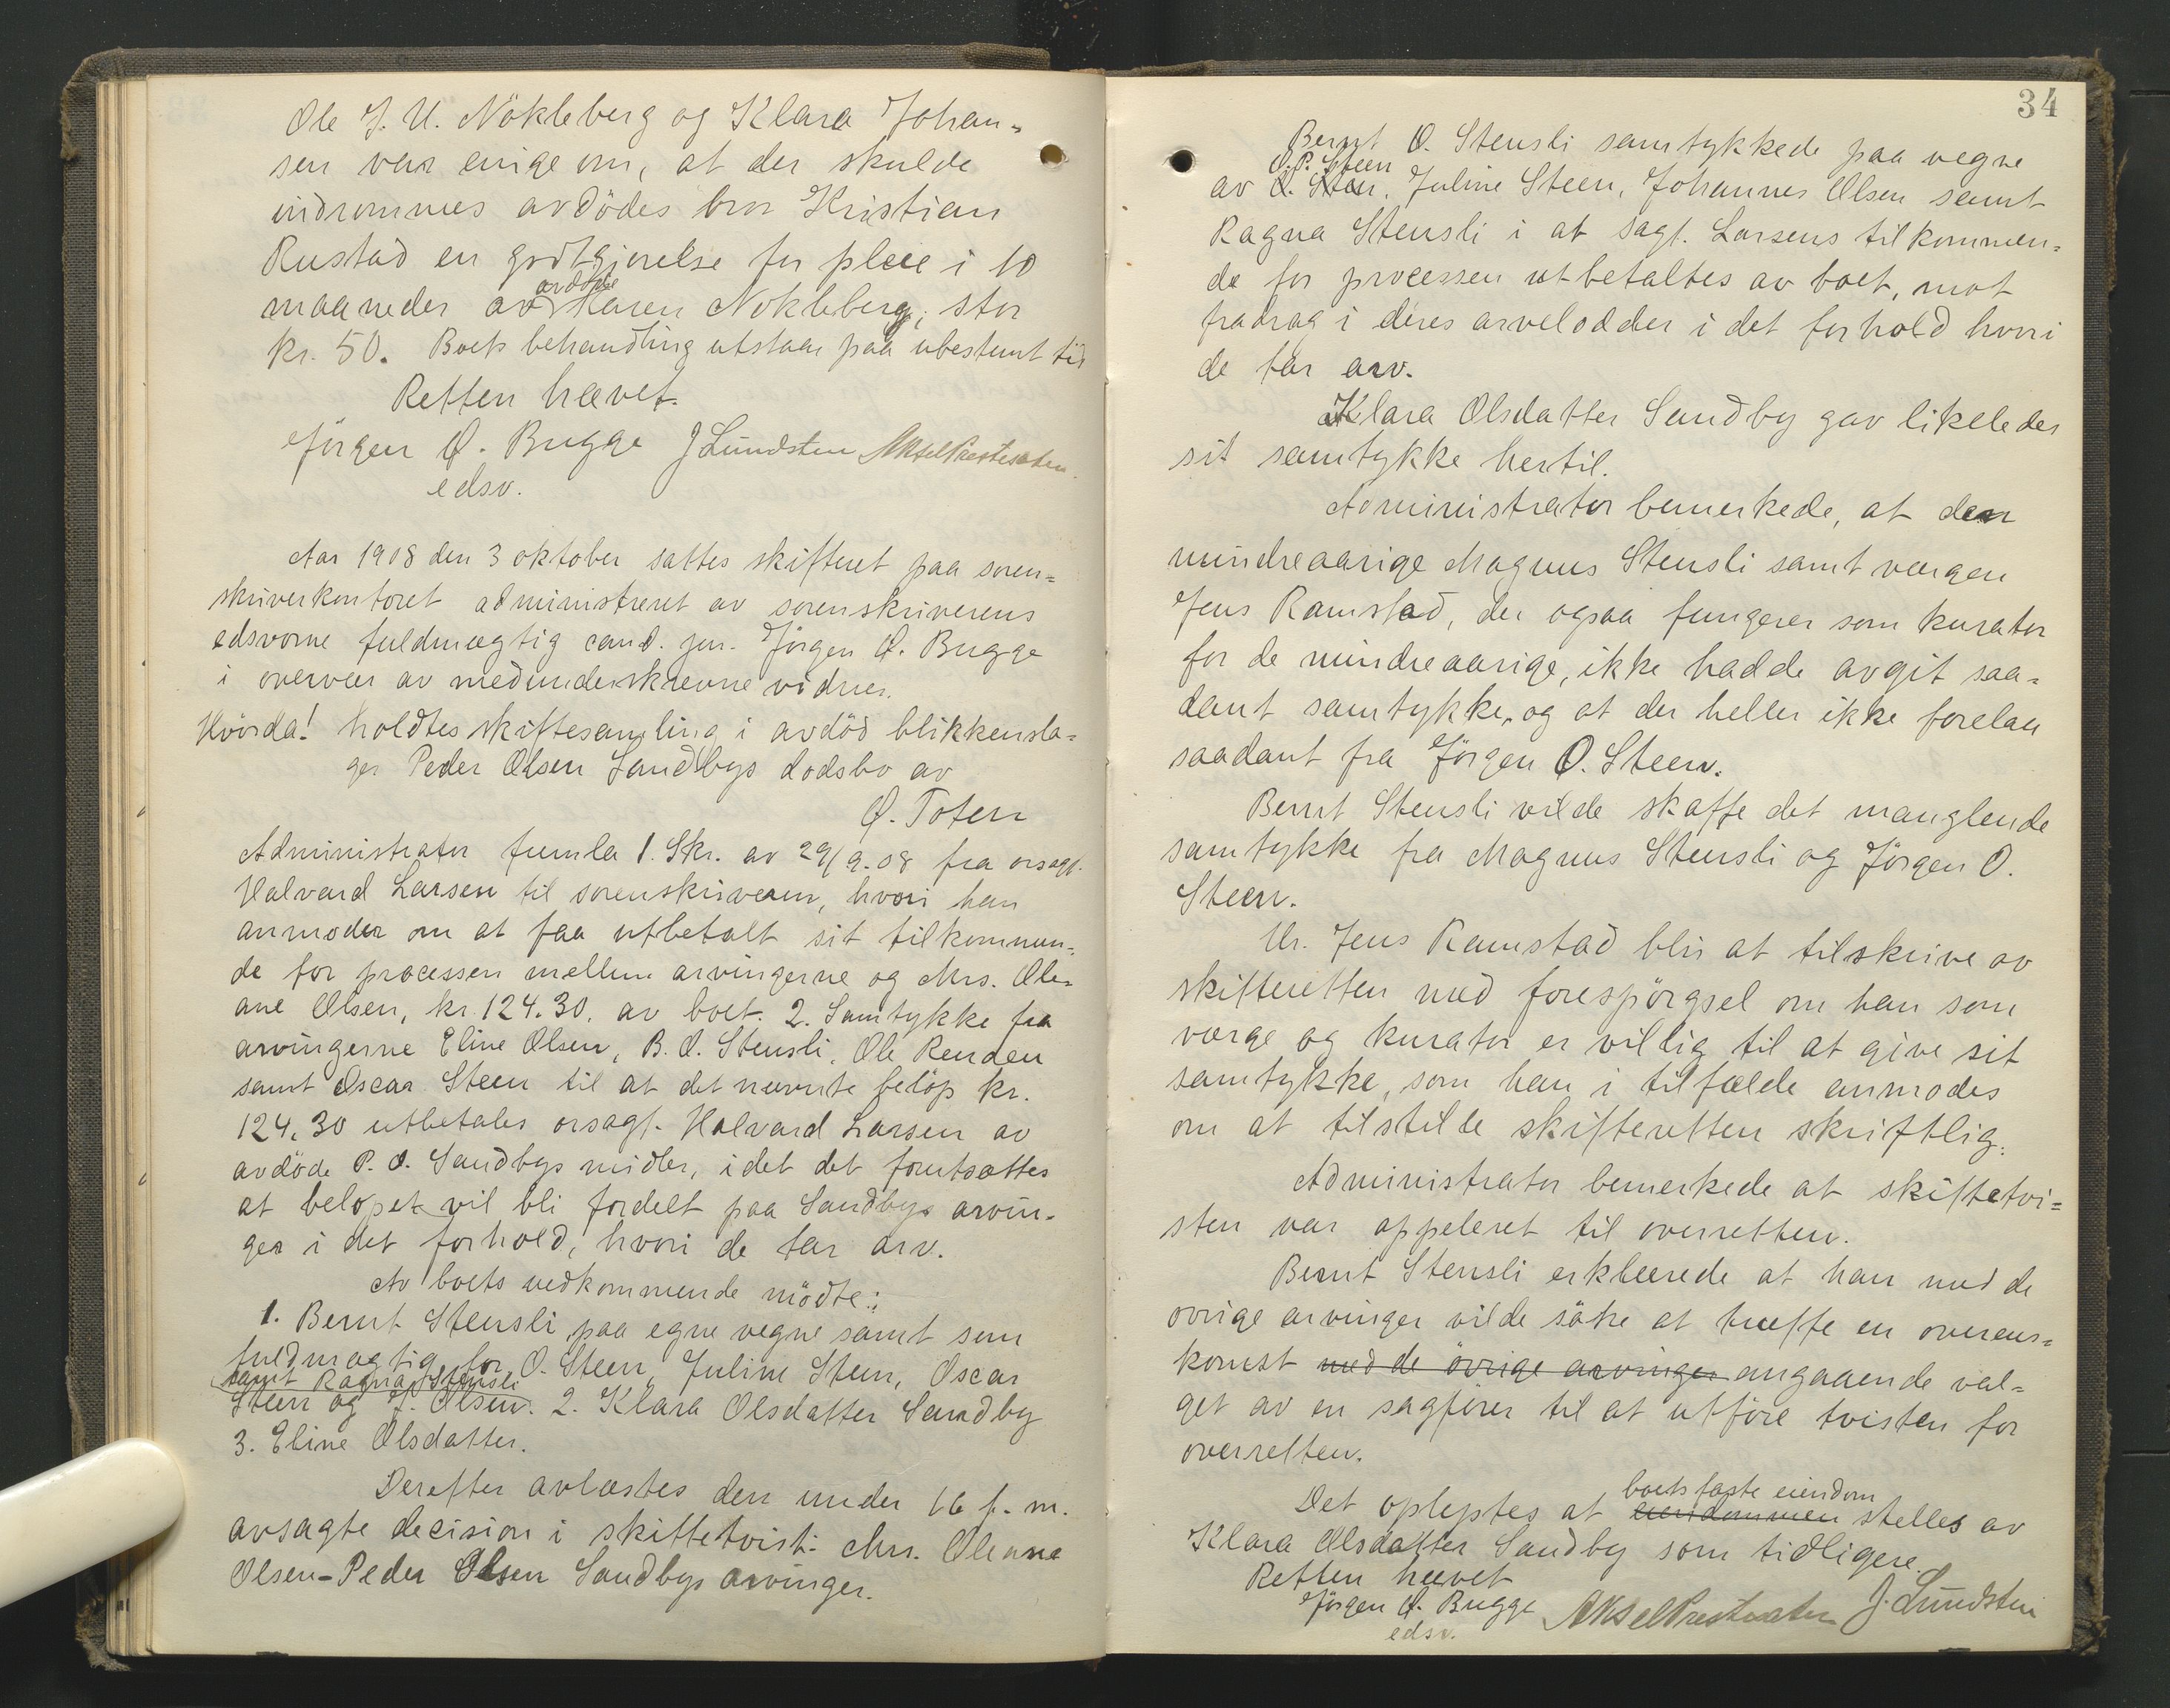 Ole J. U. Nökleberg og Klara Johan-
sen var enige om, at der skulde
indrommes avdödes bror Kristian
Rustad en godtgjorelse for pleie i 10
avdöde
maaneder av Karen Nokleberg, stor
kr. 50. Boets behandling utstaar paa ubestemt tid
Retten hævet.
Jörgen Ø. Bugge J Lundsten Aksel
edsv.
Aar 1908 den 3 oktober sattes skifteret paa soren=
skriverkontoret administreret av sorenskriverens
edsvorne fuldmægtig cand. jur. Jörgen Ø. Bugge
i overvær av medunderskrevne vidner.
Hvorda! holdtes skiftesamling i avdöd blikkensla=
ger Peder Olsen Sandbys dodsbo av
Ø. Toten
Administrator fremla 1. Skr. av 29/9.08 fra orsagf.
Halvard Larsen til sorenskriveren, hvori han
anmoder om at faa utbetalt sit tilkommen-
de for processen mellem arvingerne og Mrs. Ole-
ane Olsen, kr. 124.30. av boet. 2. Samtykke fra
arvingerne Eline Olsen, B. O. Stensli, Ole Renden
samt Oscar Steen til at det nævnte belöp kr.
124.30 utbetales orsagf. Halvard Larsen av
avdöde P. O. Sandbys midler, idet det forutsættes
at belopet vil bli fordelt paa Sandbys arvin-
ger i det forhold, hvori de tar arv.
Av boets vedkommende mödte:
1. Bernt Stensli paa egne vegne samt som
fuldmagtig for O. Steen, Juline Steen, Oscar
samt Ragna Stensli
Steen og J. Olsen. 2. Klara Olsdatter Sandby
3. Eline Olsdatter.
Derefter avlæstes den under 16 f. m.
avsagte decision i skiftetvist: Mrs. Oleane
Olsen-Peder Olsen Sandbys arvinger.
34
Bernt O. Stensli samtykkede paa vegne
O.P. Steen
av O. Steen, Juline Steen, Johannes Olsen samt
Ragna Stensli i at sagf. Larsens tilkommen=
de for processen utbetaltes av boet, mot
fradrag i deres arvelodder i det forhold hvori
de tar arv.
Klara Olsdatter Sandby gav likeledes
sit samtykke hertil.
Administrator bemerkede, at den
mindreaarige Magnus Stensli samt værgen
Jens Ramstad, der ogsaa fungerer som kurator
for de mindreaarige, ikke hadde avgit saa=
dant samtykke, og at der heller ikke forelaa
saadant fra Jörgen O. Steen.
Bernt Stensli vilde skaffe det manglende
samtykke fra Magnus Stensli og Jörgen O.
Steen.
Hr. Jens Ramstad blir at tilskrive av
skifteretten med forespörgsel om han som
værge og kurator er villig til at give sit
samtykke, som han i tilfælde anmodes
om at tilstille skifteretten skriftlig.
Administrator bemerkede at skiftetvi=
sten var appeleret til overretten.
Bernt Stensli erklærede at han med de
ovrige arvinger vilde söke at træffe en overens=
komst med de övrige arvinger angaaende val=
get av en sagförer til at utföre tvisten for
overretten.
boets faste eiendom
Det oplystes at eiendommen stelles av
Klara Olsdatter Sandby som tidligere.
Retten hævet
Jörgen Ø. Bugge Aksel J. Lundsten
edsv.